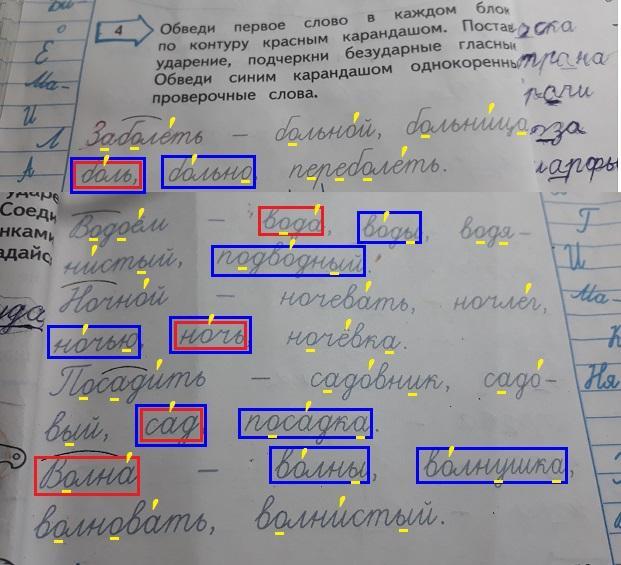 4 Обведи первое слово в каждом блок
по контуру красным карандашом. Постав
ударение, подчеркни безударные гласны
Обведи синим карандашом однокоренны
проверочные слова.
Заболеть – больной, больница,
боль, больно, переболеть.
Водоём – вода, воды, водя-
нистый, подводный.
Ночной – ночевать, ночлег,
ночью, ночь, ночёвка.
Посадить – садовник, садо-
вый, сад, посадка.
Волна – волны, волнушка,
волновать, волнистый.
о
Е
Ма-
И
Л
А
трана
Соеди
нками
Г
И
Ма-
К
Ня